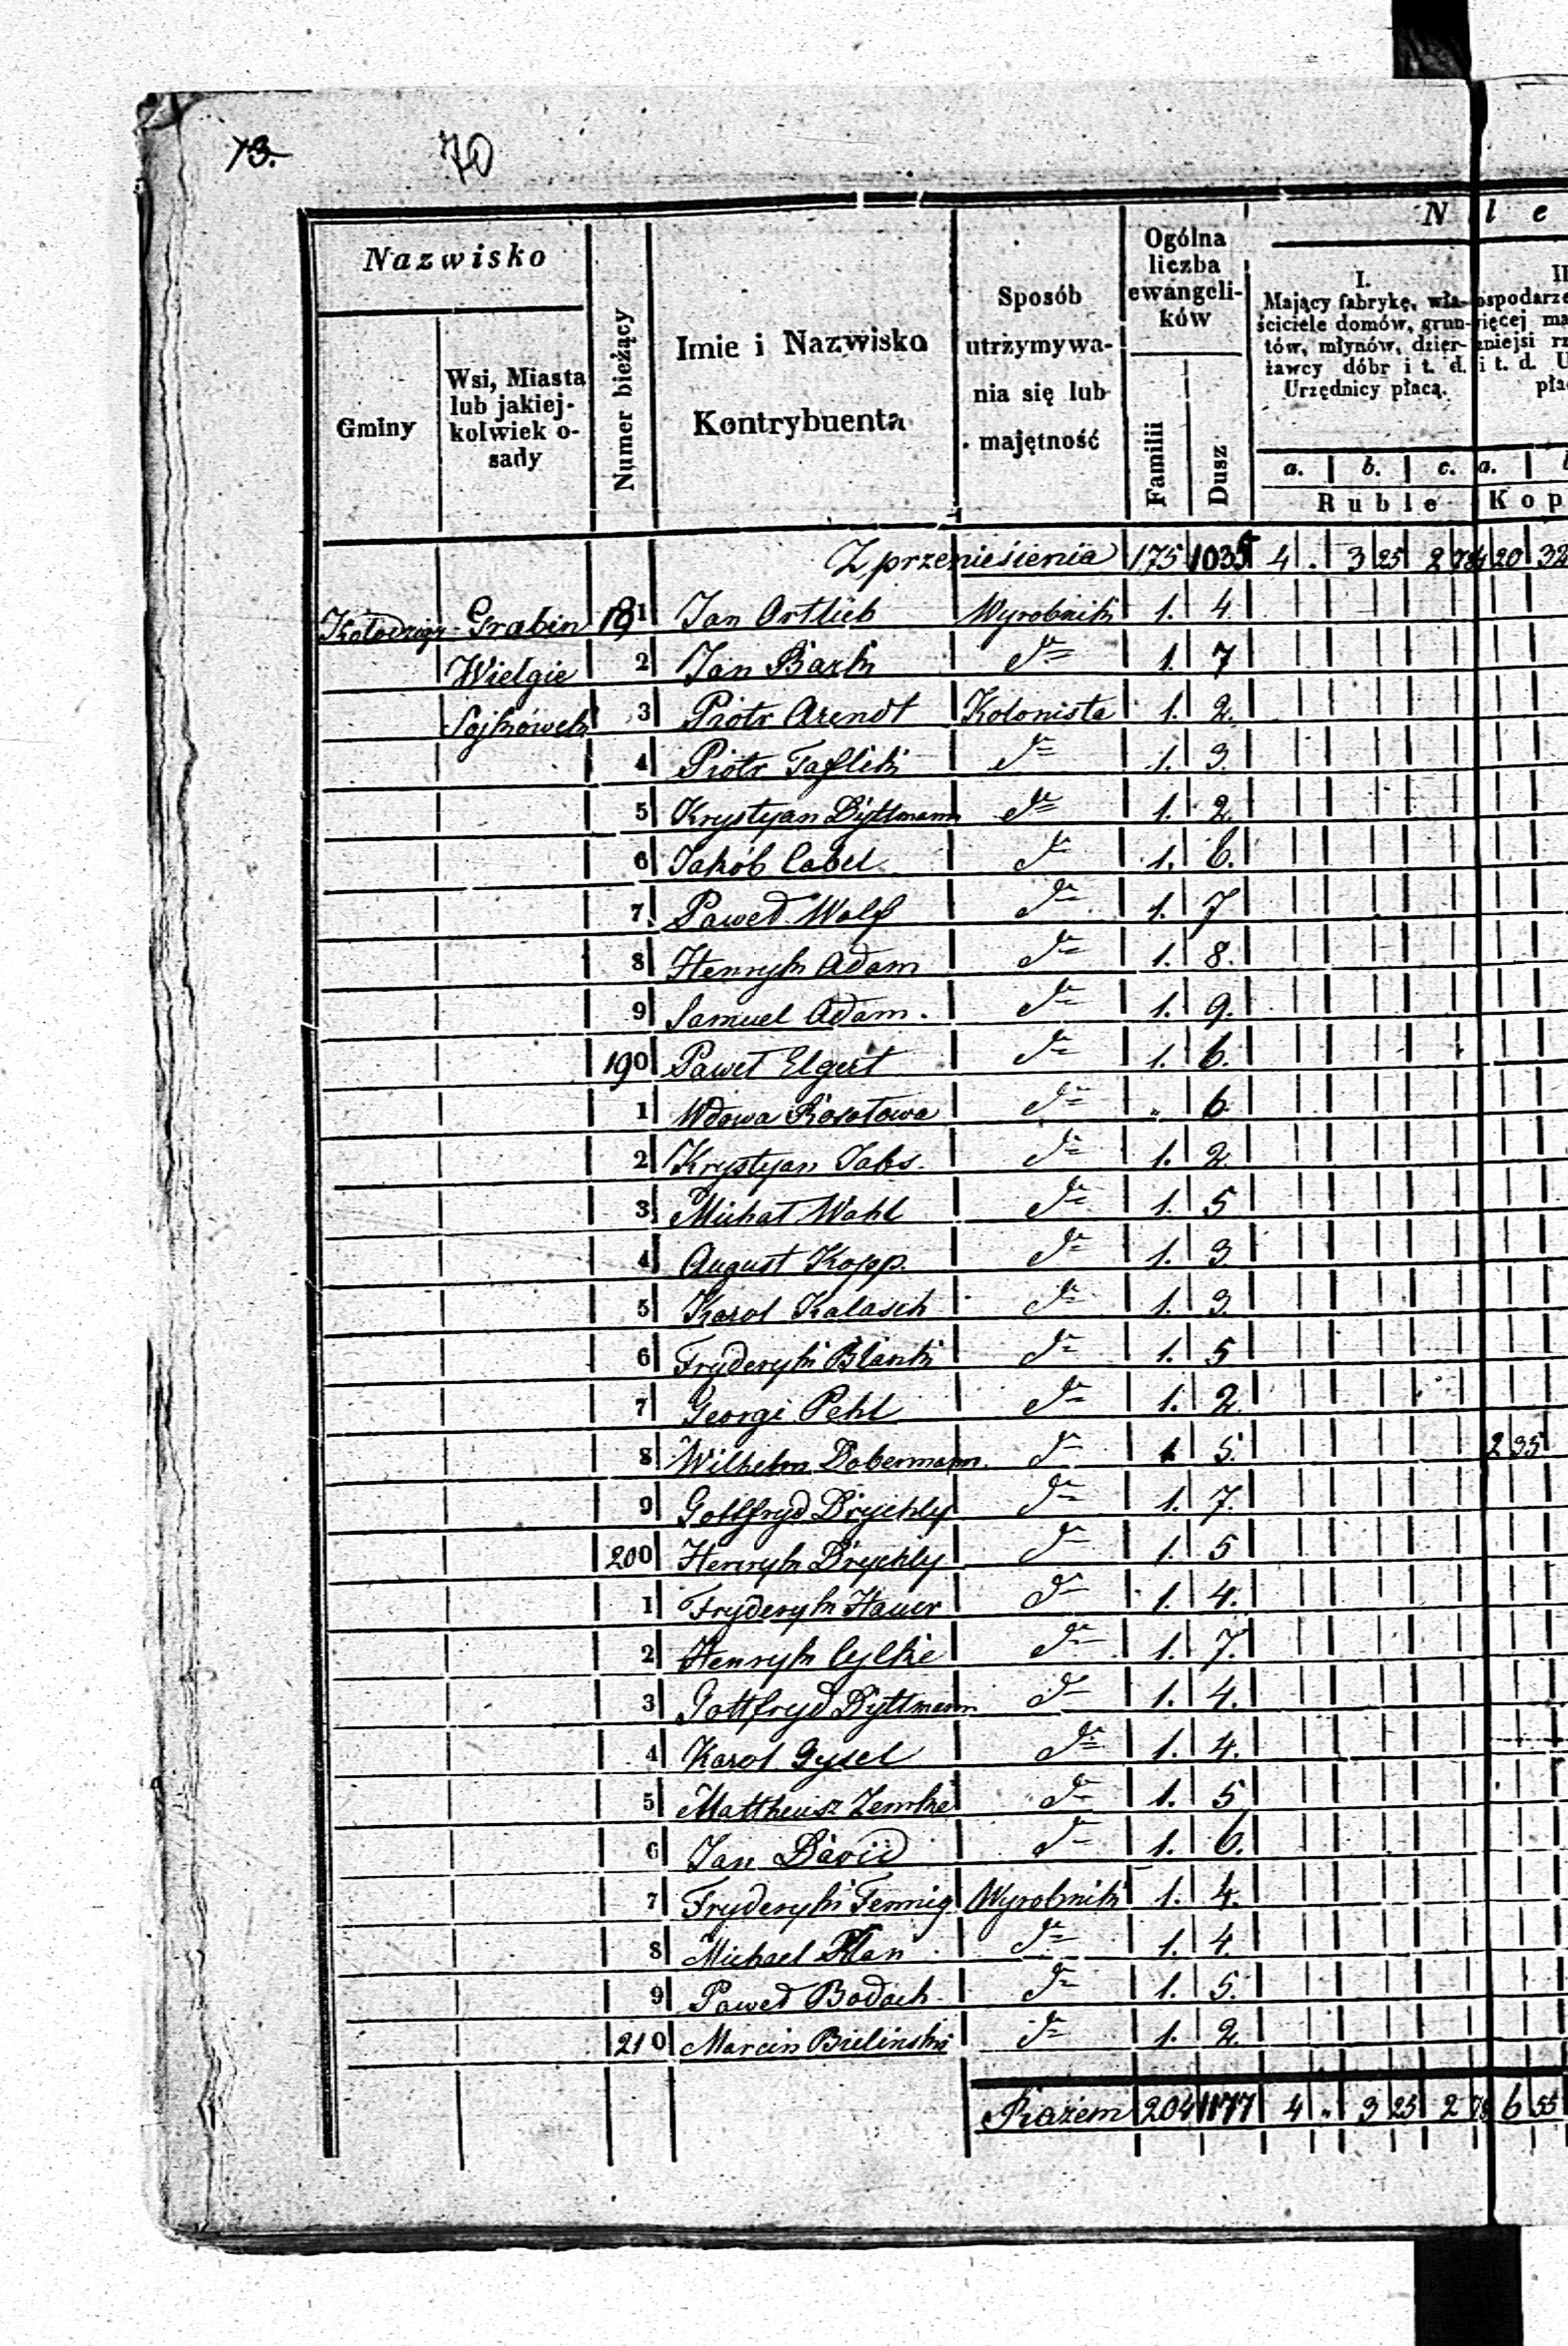 73.
70
Nazwisko
Gminy
Wsi, Miasta lub jakiej-kolwiek o-sady
Numer bieżący
Imie i Nazwisko Kontrybuenta
Sposób utrzymywa-nia się lub majętność
Ogólna liczba ewangeli-ków
Familii
Dusz
N l e
I.
Mający fabrykę, wła-ściciele domów, grun-tów, młynów, dzier-żawcy dóbr i t. d. Urzędnicy płacą.
a. b. c. a.
Ruble Kop
Z przeniesienia 175 1035 4 . 3 25 2 78 4 20 32
Grabin 181 Jan Ortlieb Wyrobnik 1. 4
Wielgie 2 Jan Bark dto 1. 7
Sojkówek 3 Piotr Arendt Kolonista 1. 2.
4 Piotr Taflik dto 1. 3.
5 Krystyan Dyttmann dto 1. 2
6 Jakób Cabel dto 1. 6.
7. Paweł Wolf dto 1. 7
8 Henryk Adam dto 1. 8.
9 Samuel Adam. dto 1. 9.
190 Paweł Elgert dto 1. 6.
1 Wdowa dto " 6
2 Krystyan Jabs. dto 1. 2
3 Michał Wahl dto 1. 5
4 August Kopp. dto 1. 3
5 Karol Kalasch dto 1. 3
6 Fryderyk Blank dto 1. 5
7 Georgi Pehl dto 1. 2
8 Wilhelm Dobermann. dto 1 5. 2 35
9 Gottfryd Drychly dto 1. 7.
200 Henryk Drychly dto 1. 5
1 Fryderyk Hauer dto 1. 4.
2 Henryk Cylke dto 1. 7.
3 Gottfryd Dyttmann dto 1. 4.
4 Karol Gysel dto 1. 4.
5 Mattheusz Zemke dto 1. 5
6 Jan David dto 1. 6.
7 Fryderyk Fennig Wyrobnik 1. 4.
8 Michael dto 1. 4.
9 Paweł Badach dto 1. 5.
210 Marcin Bielinski dto 1. 2.
Razem 204 1177 4 " 3 25 2 78 6 55